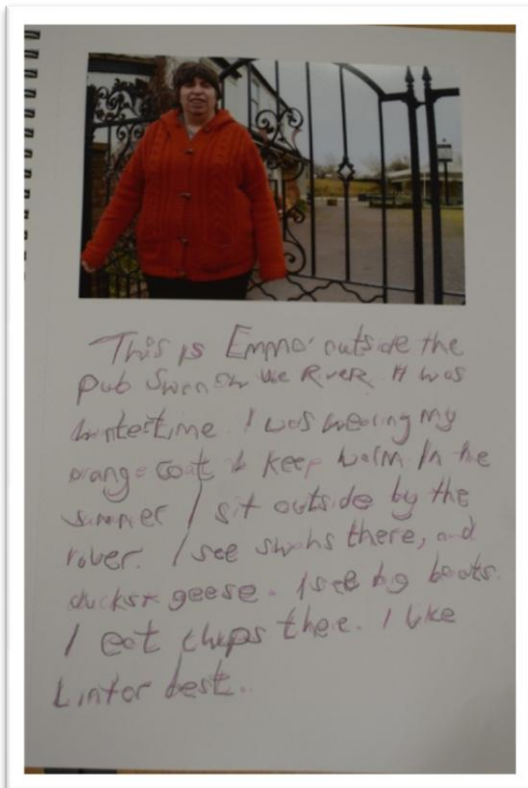 This is Emma outside the
pub Swan on the River. It was
wintertime. I was wearing my
orange coat to keep warm In the
summer I sit outside by the
rover. I see swans there, and
ducks + geese. I see big boats.
I eat chips there. I like
best..